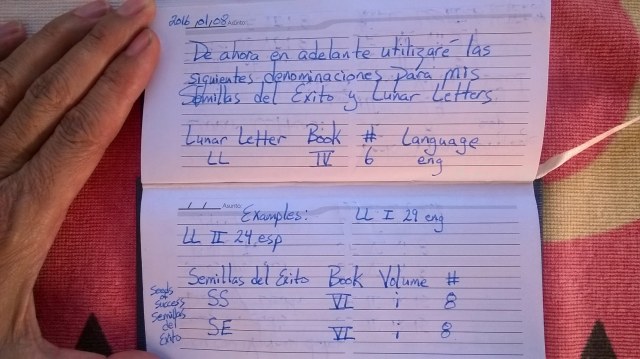 2016,01,08 Asunto:
De ahora en adelante utilizaré las
siguientes denominaciones para mis
Semillas del Éxito y Lunar Letters
Lunar Letter Book # Language
LL IV 6 eng
/ / Asunto:
Examples: LL I 29 eng
LL II 24 esp
Semillas del Exito Book Volume #
Seeds of Success SS VI i 8
Semillas del Éxito SE VI i 8